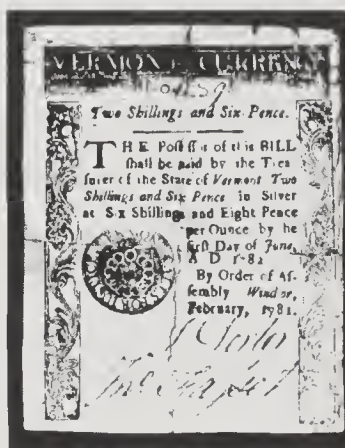 VERMONT CURRENCY
Two Shillings and Six Pence.
THE Possessor of this BILL
shall be paid by the Trea
surer of the State of Vermont Two
Shillings and Six Pence in Silver
at Six Shillings and Eight Pence
per Ounce by he
first Day of June,
A D 1782
By Order of As-
sembly Windsor,
February, 1781.